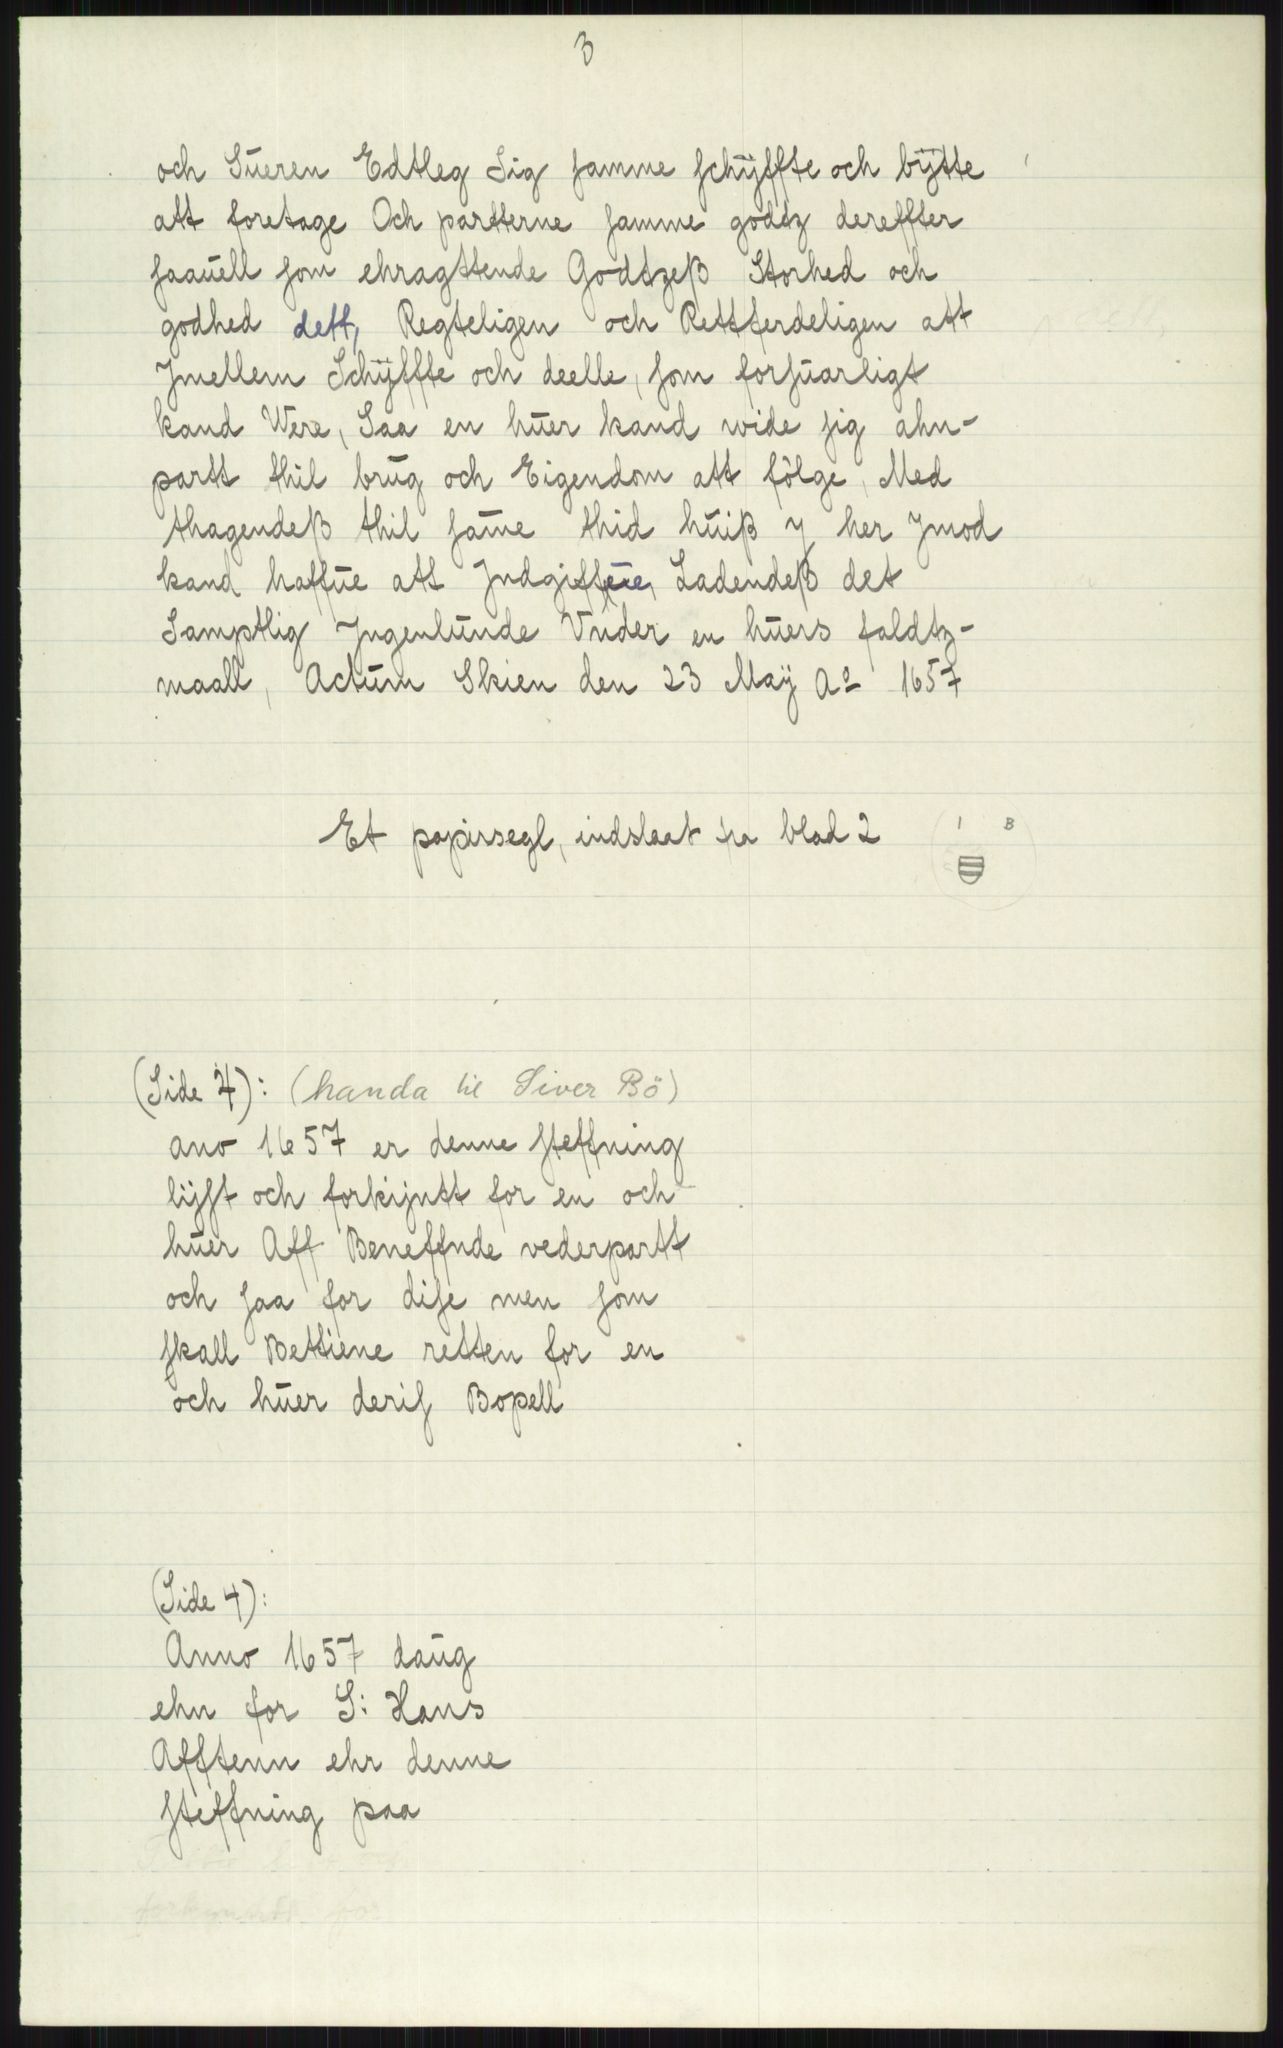 3
och Süeren Edtleg Sig samme schÿffte och bÿtte
att foretage Och partterne samme godtz dereffter
saauell som ehragttende Godtzeß Storhed och
godhed dett, Regteligen och Rettferdeligen att
Jmellem Schÿffte och deelle, som forsuarligt
kand Were, Saa en huer kand wide sig ahn-
partt thil brug och Eigendom att fölge, Med
thagendeß thil same thid huiß y her Jmod
kand haffue att Jndgiffue, Ladendeß det
Samptlig Jngenlunde Vnder en huers faldtz-
maall, Actum Skien den 23 Maÿ Aº 1657
Et papirsegl, indslaat fra blad 2
I B
(Side 4): (handa til Siver Bö)
ano 1657 er denne steffning
lijst och forkijntt for en och
huer Aff Beneffnde vederpartt
och saa for dise men som
skall Bettiene retten for en
och huer deris Bopell
(Side 4):
Anno 1657 daug
ehn for S: Hans
Afftenn ehr denne
steffning paa
forkyndt for